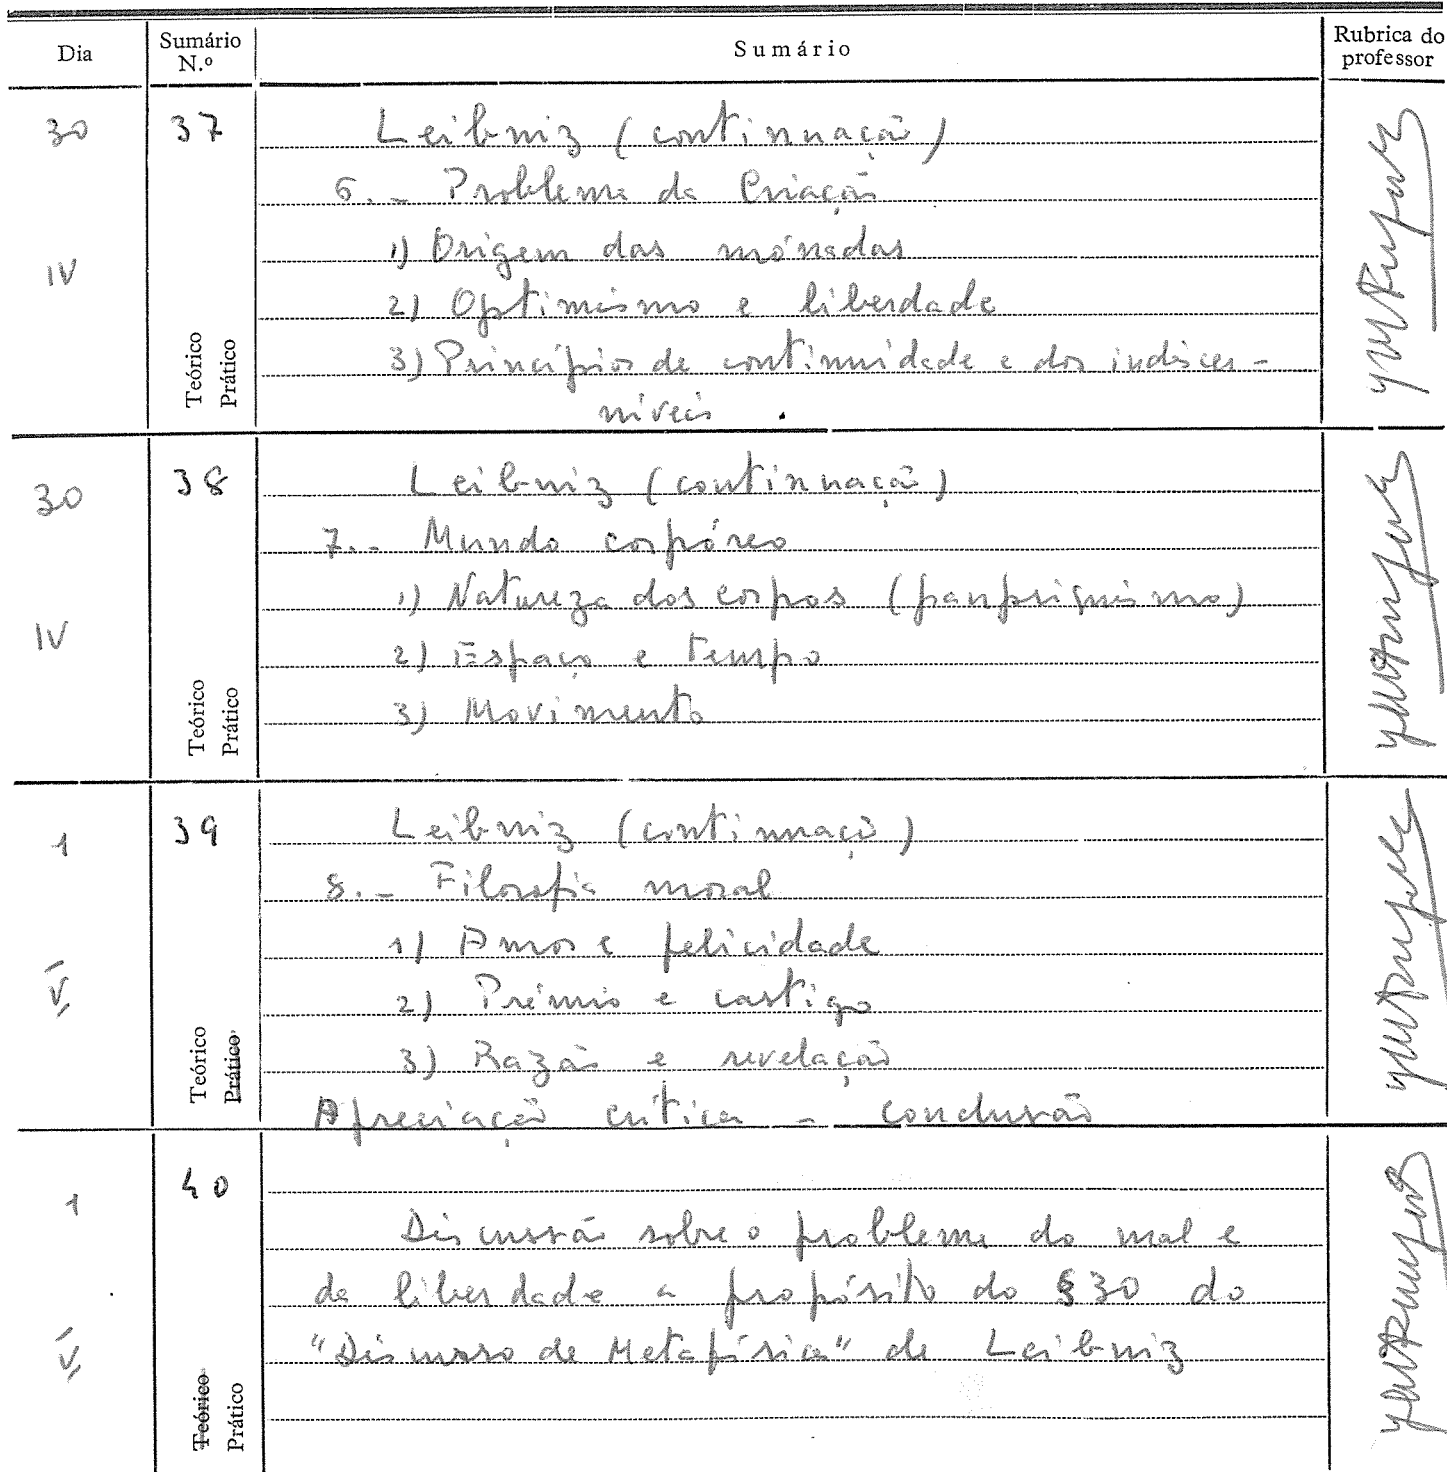 Dia Sumário N.º Sumário Rubrica do professor
30 37 Leibniz (continuação)
6.- Problema da Criação
1) Origem das mónadas
IV
2) Optimismo e liberdade
3) Princípios de continuidade e dos indiscer-
níveis
Teórico
Prático
30 38 Leibniz (continuação)
7.- Mundo corpóreo
1) Natureza dos corpos (panpsiquismo)
IV
2) Espaço e tempo
3) Movimento
Teórico
Prático
1 39 Leibniz (continuação)
8.- Filosofia moral
1) Amor e felicidade
V
2) Prémio e castigo
3) Razão e revelação
Apreciação crítica - conclusão
Teórico
Prático
1 40
Discussão sobre o problema do mal e
da liberdade a propósito do §30 do
V
"Discurso de Metafísica" de Leibniz
Teórico
Prático